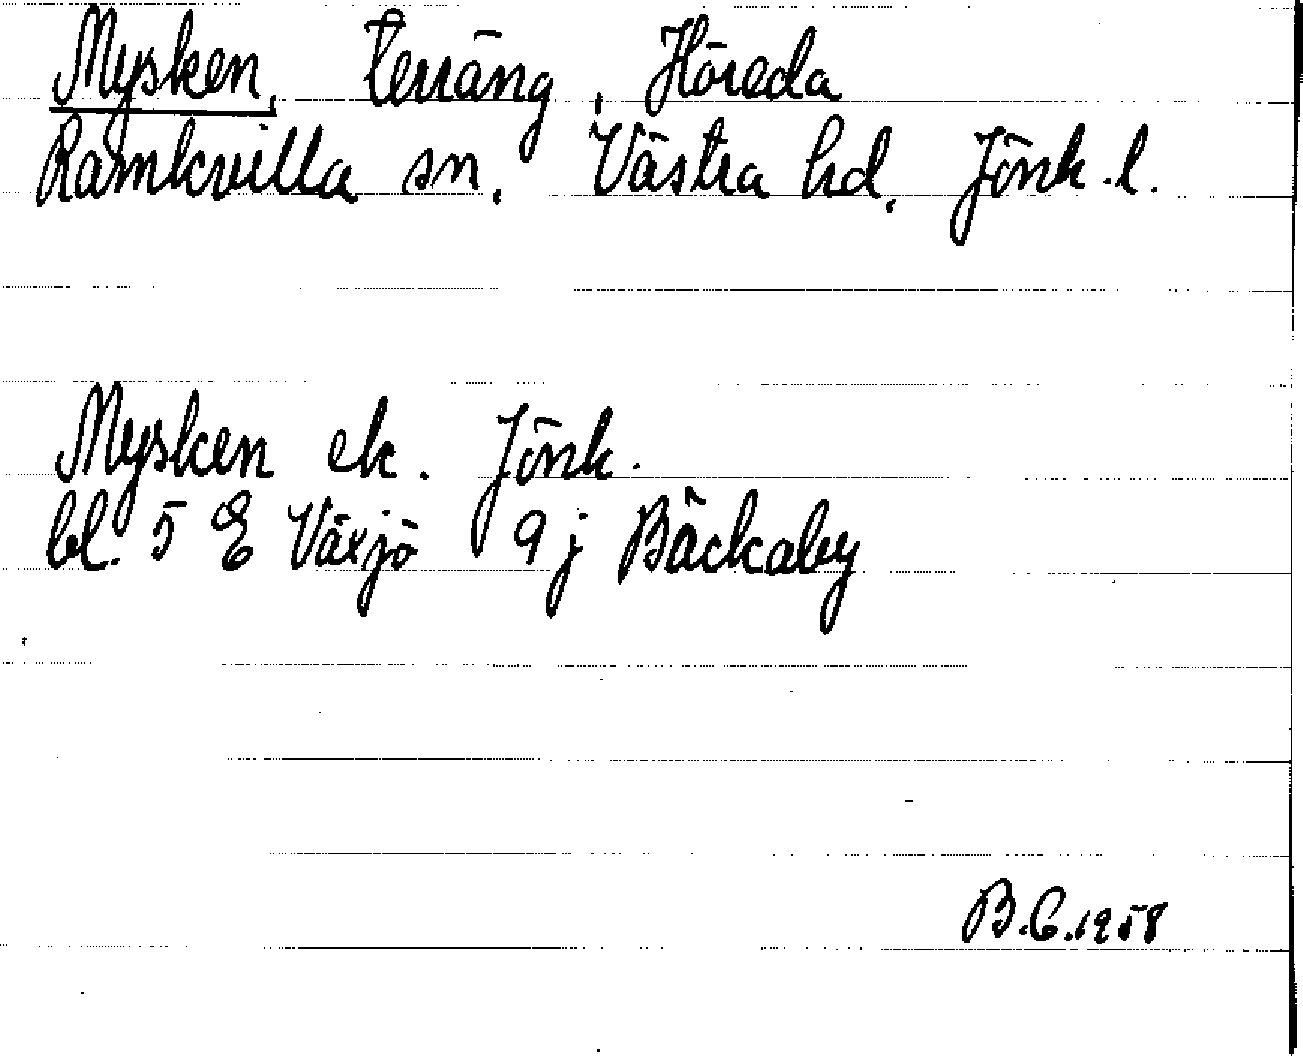 Mysken, terräng, Höreda
Ramkvilla sn, Västra hd, Jönk.l.
Mysken ek. Jönk.
bl. 5 E Växjö 9 j Bäckaby
B.C.1958